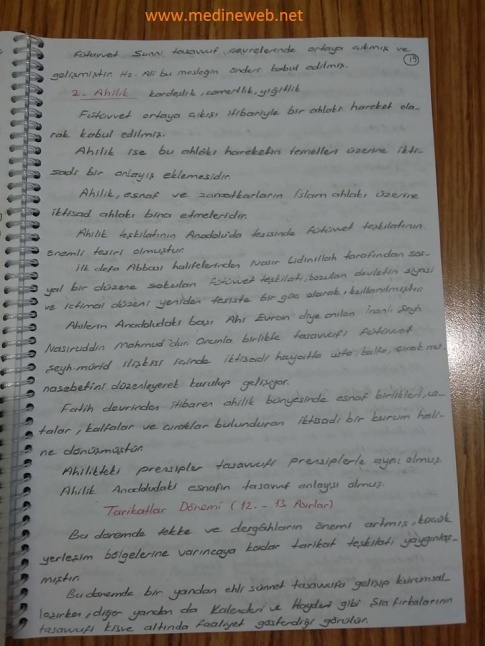 www.medineweb.net
13
Fütüvvet Sünni tasavvuf çevrelerinde ortaya çıkmış ve
gelişmiştir. Hz. Ali bu mesleğin önderi kabul edilmiş.
2- Ahilik kardeşlik, cömertlik, yiğitlik
Fütüvvet ortaya çıkışı itibariyle bir ahlaki hareket ola-
rak kabul edilmiş.
Ahilik ise bu ahlâki hareketin temelleri üzerine ikti-
sadi bir anlayış eklemesidir.
Ahilik, esnaf ve zanaatkarların İslam ahlakı üzerine
iktisad ahlakı bina etmeleridir.
Ahilik teşkilatının Anadolu'da tesisinde fütüvvet teşkilatının
önemli tesiri olmuştur.
İlk defa Abbasi halifelerinden Nasır Lidinillah tarafından sos-
yal bir düzene sokulan fütüvvet teşkilatı, bozulan devletin siyasi
ve ictimai düzeni yeniden tesiste bir güç olarak kullanılmıştır.
Ahilerin Anadoludaki başı Ahi Evran diye anılan Şeyh
Nasiruddin Mahmud'dur. Onunla birlikte tasavvufi fütüvvet
şeyh-mürid ilişkisi içinde iktisadi hayatta usta, kalfa, çırak mü
nasebetini düzenleyerek kurulup gelişiyor.
Fatih devrinden itibaren ahilik bünyesinde esnaf birlikleri, us-
talar, kalfalar ve çıraklar bulunduran iktisadi bir kurum hali-
ne dönüşmüştür.
Ahilikteki prensipler tasavvufi prensiplerle aynı olmuş
Ahilik Anadoludaki esnafın tasavvuf anlayışı olmuş.
Tarikatlar Dönemi (12. - 13. Asırlar)
Bu dönemde tekke ve dergâhların önemi artmış, küçük
yerleşim bölgelerine varıncaya kadar tarikat teşkilatı yaygınlaş-
mıştır.
Bu dönemde bir yandan ehli sünnet tasavvufu gelişip kurumsal-
laşırken, diğer yandan da Kalenderi ve Haydari gibi Şia fırkalarının
tasavvufi kisve altında faaliyet gösterdiği görülür.